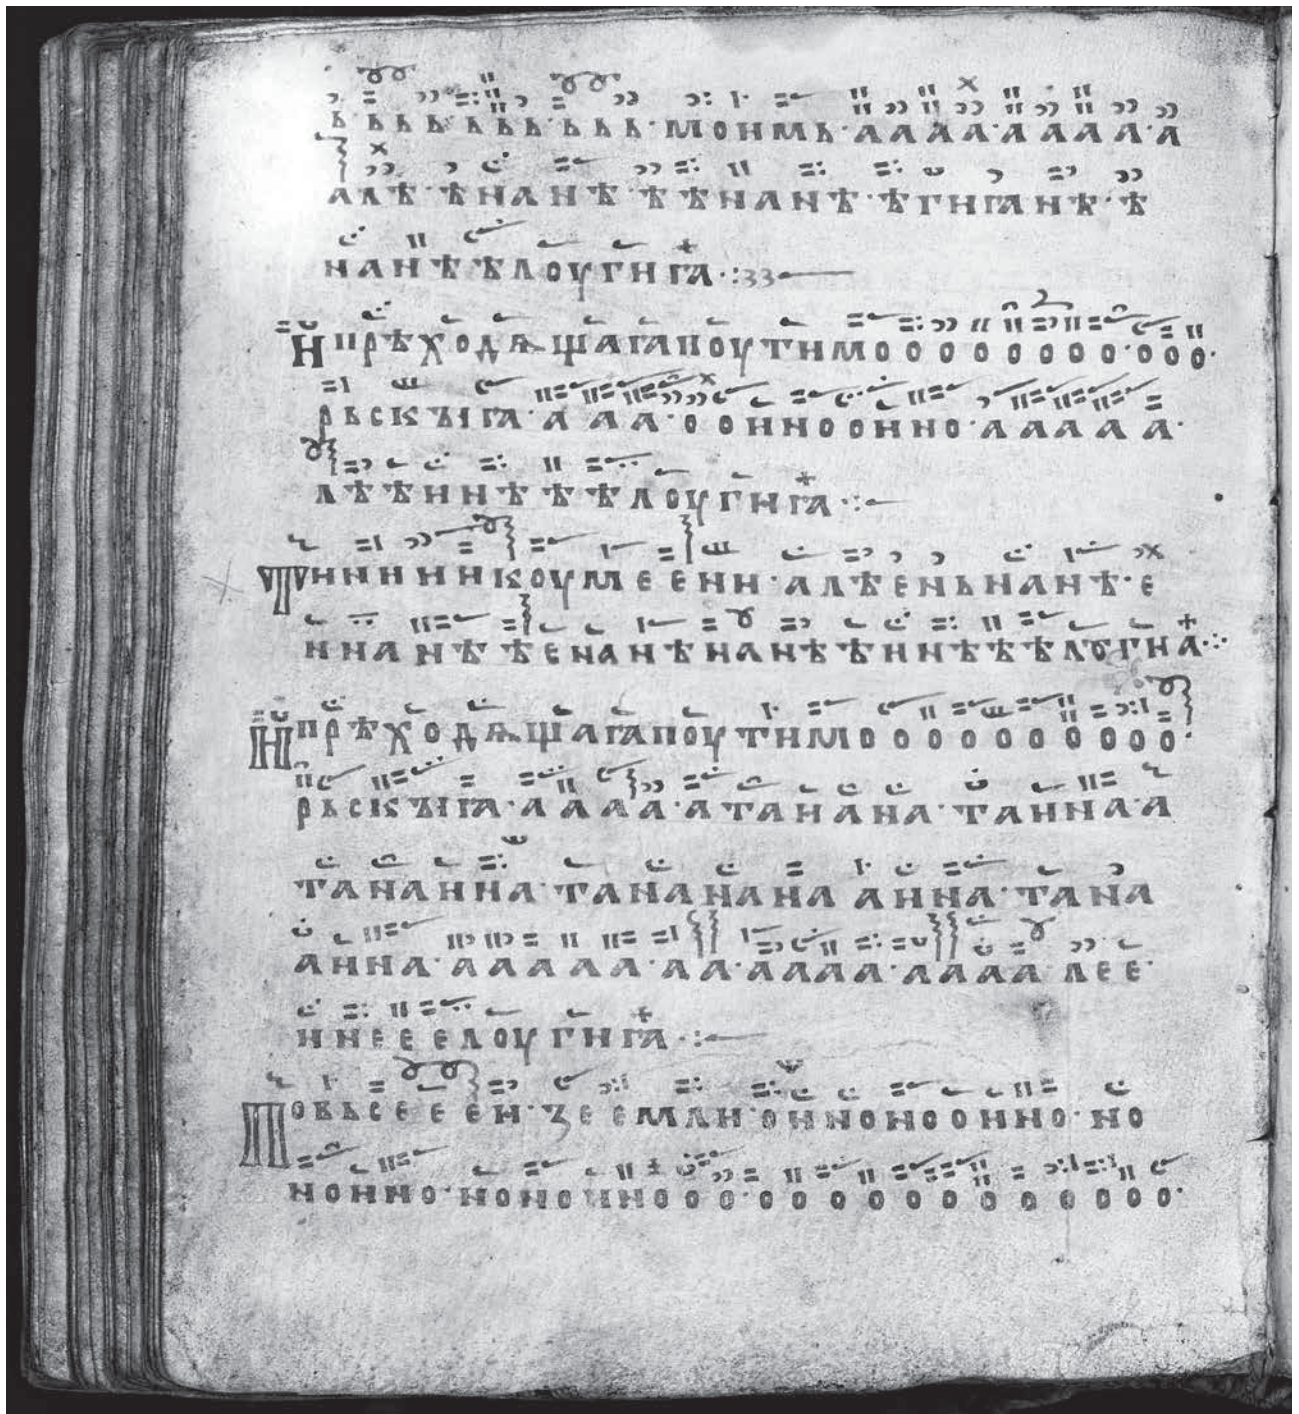 ь ь ь ь · ь ь ь · ь ь ь · моимь · а а а а · а а а а · а
алѣ · ѣ н а н ѣ · ѣ ѣ н а н ѣ · ѣ г н ꙗ н ѣ · ѣ
н а н ѣ ѣ л оу г н ꙗ · :
И прѣходѧщаꙗ поутимо о о о о о о о · о о о ·
рьскꙑꙗ · а а а · о о н н о о н н о · а а а а а ·
л ѣ ѣ н н ѣ ѣ ѣ л оу г н ꙗ · :
Т н н н н н к оу м е е н н · а л ѣ е н ь н а н ѣ · е
н н а н ѣ ѣ е н а н ѣ н а н ѣ ѣ н н ѣ ѣ ѣ л ꙋ г н а · :
И прѣходѧщаꙗ поутимо о о о о о о о о о ·
рьскꙑꙗ · а а а а · а т а н а н а · т а н н а · а
т а н а н н а · т а н а н а н а а н н а · т а н а
а н н а · а а а а а · а а · а а а а · а а а а л е е ·
н н е е е л оу г н ꙗ · :
П о в ь с е е е н · з е е м л н · о н н о н о о н н о · н о
н о н н о · н о н о н н о о о · о о о о о о о о о о о о ·